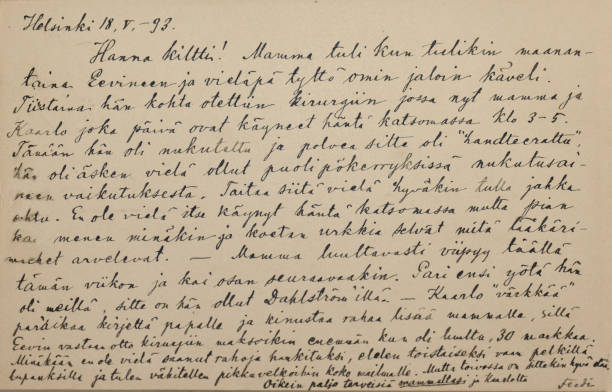 Helsinki 18, V. -93.
Hanna kiltti! Mamma tuli kun tulikin maanan-
taina Eevineen ja vieläpä tyttö omin jaloin käveli.
Tiistaina hän kohta otettiin kirurgiin jossa nyt mamma ja
Kaarlo joka päivä ovat käyneet häntä katsomassa klo 3-5.
Tänään hän oli nukutettu ja polvea sitte oli "handteerattu"
hän oli äsken vielä ollut puolipökerryksissä nukutusai-
neen vaikutuksesta. Taitaa siitä vielä hyväkin tulla jahka
ehtii. En ole vielä itse käynyt häntä katsomassa mutta pian
kai menen minäkin ja koetan urkkia selvät mitä lääkäri-
miehet arvelevat. — Mamma luultavasti viipyy täällä
tämän viikon ja kai osan seuraavaakin. Pari ensi yötä hän
oli meillä, sitte on hän ollut Dahlström'illä. — Kaarlo "värkkää"
paraikaa kirjettä papalle ja kinustaa rahaa lisää mammalle, sillä
Eevin vastaanotto kirurgiin maksoikin enemmän kun oli luultu, 30 markkaa.
Minäkään en ole vielä saanut rahoja hankituksi, elelen toistaiseksi vaan pelkillä
lupauksilla ja tulen vähitellen pikkuvelkoihin koko mailmalle. Mutta toivossa on sittekin hyvä
Oikein paljo terveisiä mammallasi ja